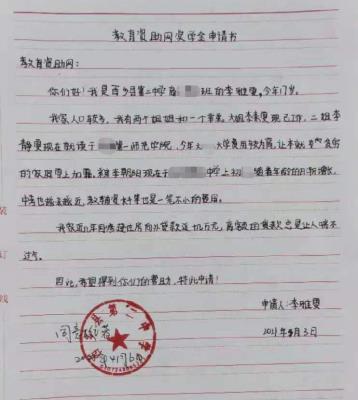 教育资助网奖学金申请书
教育资助网：
你们好！我是百乡县第二中学高班的李雅雯，今年17岁。
我家人口较多，我有两个姐姐和一个弟弟。大姐李素雯现已工作，二姐李
静雯现在就读于第一师范学院，今年大大学费用较为高，让本就负担
的家庭雪上加霜。弟弟李朝阳现在于中学上初随着年龄的日渐增长，
中考也越来越近，教辅资料等也是一笔不小的费用。
我家近几年因修建住房向外贷款近几万元，高额的贷款总是让人喘不
过气。
因此，希望得到你们的帮助，特此申请！
申请人：李雅雯
县第二中学
同意
2021年4月6日
2021年4月3日